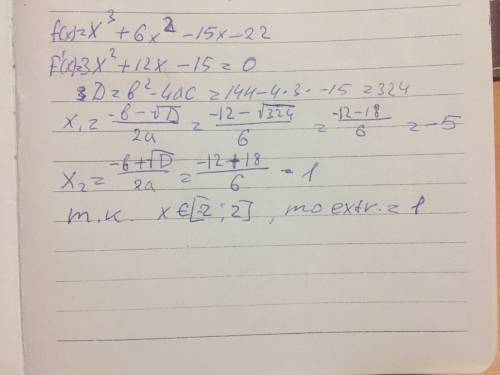 f(x)=x³+6x²-15x-22
F'(x)=3x²+12x-15=0
D=b²-4ac=144-4·3·-15=324
x₁=(-b-√D)/2a=(-12-√324)/6=(-12-18)/6=-5
x₂=(-b+√D)/2a=(-12+18)/6=1
т.к. x∈[-2;2], то extr.=1